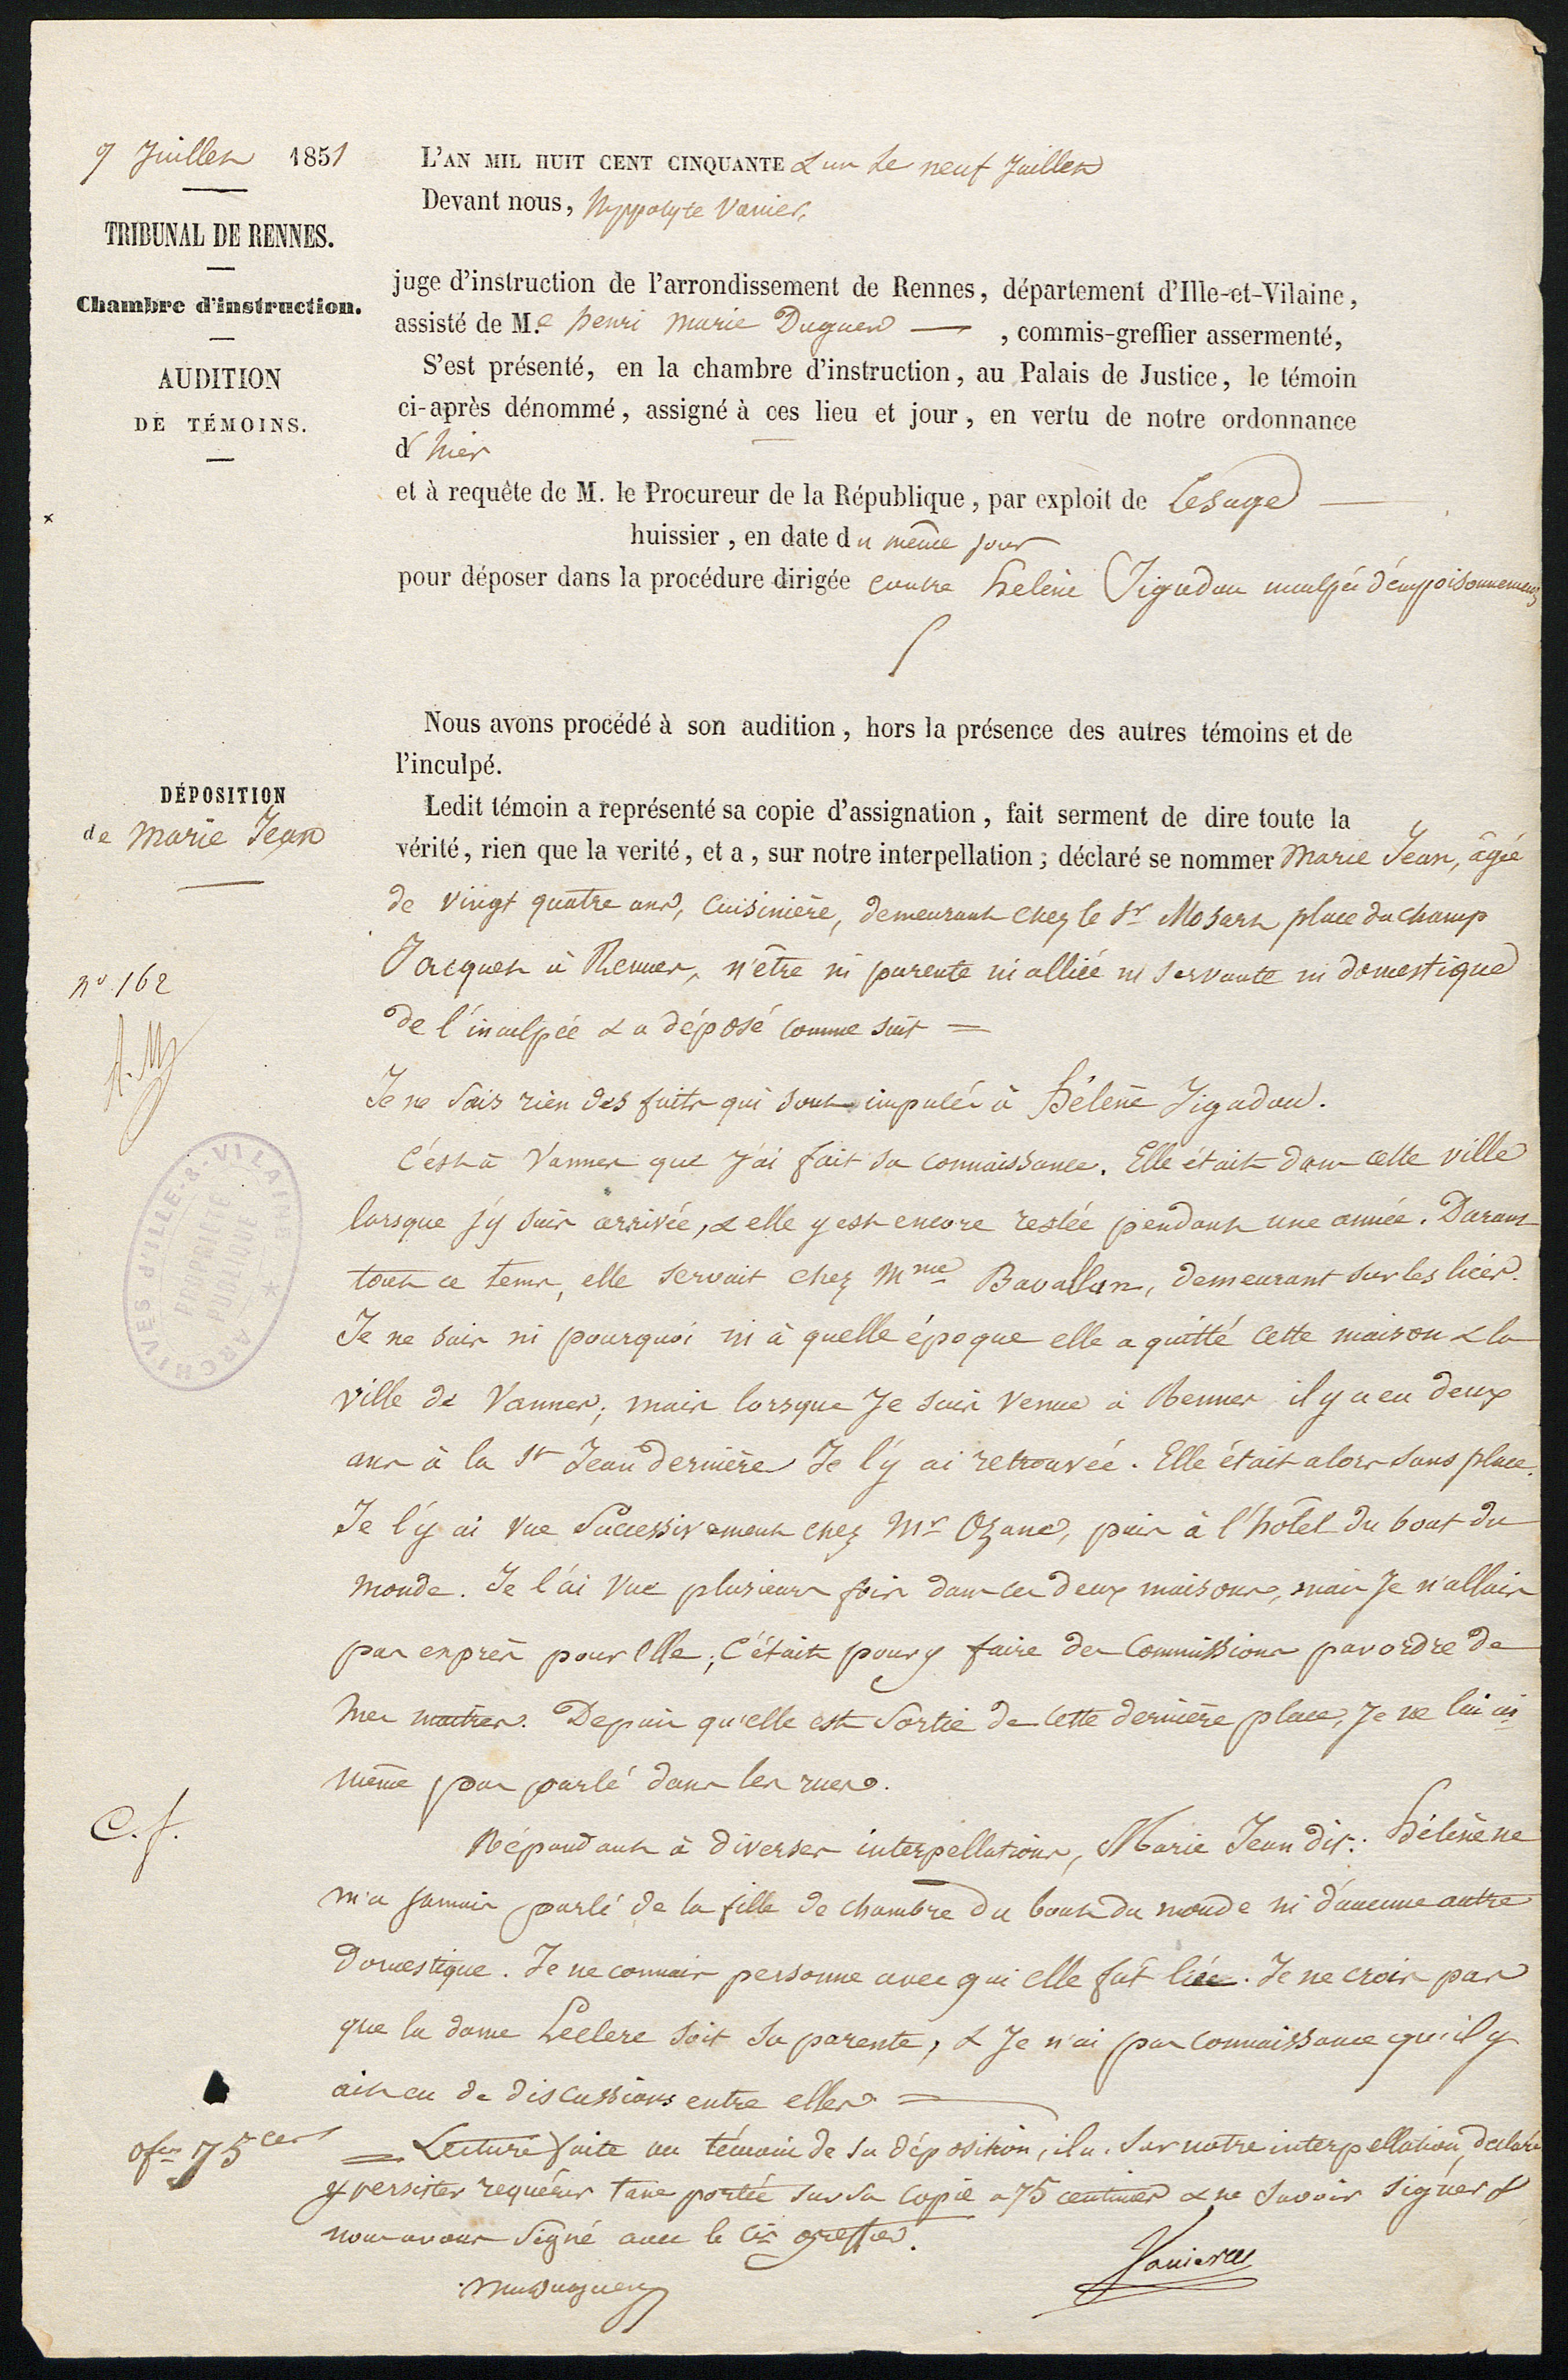 9 Juillet 1851
TRIBUNAL DE RENNES.
Chambre d'instruction.
AUDITION
DE TÉMOINS.
L'AN MIL HUIT CENT CINQUANTE & un Le neuf Juillet
Devant nous, hyppolyte Vanier,
juge d'instruction de l'arrondissement de Rennes, département d'Ille-et-Vilaine,
assisté de M.e henri marie Duguen — , commis-greffier assermenté,
S'est présenté, en la chambre d'instruction, au Palais de Justice, le témoin
ci-après dénommé, assigné à ces lieu et jour, en vertu de notre ordonnance
d'hier
et à requête de M. le Procureur de la République, par exploit de Lesage —
huissier, en date du même jour
pour déposer dans la procédure dirigée contre helène Jigadou inculpée d'empoisonnement
Nous avons procédé à son audition, hors la présence des autres témoins et de
l'inculpé.
DÉPOSITION
de Marie Jean
Ledit témoin a représenté sa copie d'assignation, fait serment de dire toute la
vérité, rien que la verité, et a, sur notre interpellation; déclaré se nommer Marie Jean, âgée
de vingt quatre ans, cuisinière, demeurant chez le Sr Mosart place du champ
Jacquet à Rennes, n'être ni parente ni alliée ni servante ni domestique
de l'inculpée & a déposé comme suit =
no 162
Je ne sais rien des faits qui sont imputés à hélène Jigadou.
C'est à Vannes que j'ai fait sa connaissance. Elle était dans cette ville
lorsque j'y suis arrivée, & elle y est encore restée pendant une année. Durant
tout ce tems, elle servait chez Mme Bavallan, demeurant sur les lices.
Je ne sais ni pourquoi ni à quelle époque elle a quitté cette maison & la
ville de Vannes; mais lorsque Je suis venue à Rennes il y a eu deux
ans à la St Jean dernière Je l'y ai retrouvée. Elle était alors sans place.
Je l'y ai vue successivement chez Mr Ozane, puis à l'hôtel du bout du
monde. Je l'ai vue plusieurs fois dans ces deux maisons, mais Je n'allais
pas exprès pour elle; c'était pour y faire des commissions par ordre de
mes maitres. Depuis qu'elle est sortie de cette dernière place, Je ne lui ai
même pas parlé dans les rues.
C. f.
Répondant à diverses interpellations, Marie Jean dit: hélène ne
m'a jamais parlé de la fille de chambre du bout du monde ni d'aucune autre
domestique. Je ne connais personne avec qui elle fut liée. Je ne crois pas
que la dame Leclerc soit sa parente, & Je n'ai pas connaissance qu'il y
ait eu de discussions entre elles =
0fr 75 cent
= Lecture faite au témoin de sa déposition, il a, sur notre interpellation, déclaré
y persister requérir taxe portée sur sa copie a 75 centimes & ne savoir signer &
nous avons signé avec le cis greffier.
Vanier
hmduguen
ARCHIVES d'ILLE-&-VILAINE
PROPRIÉTÉ
PUBLIQUE